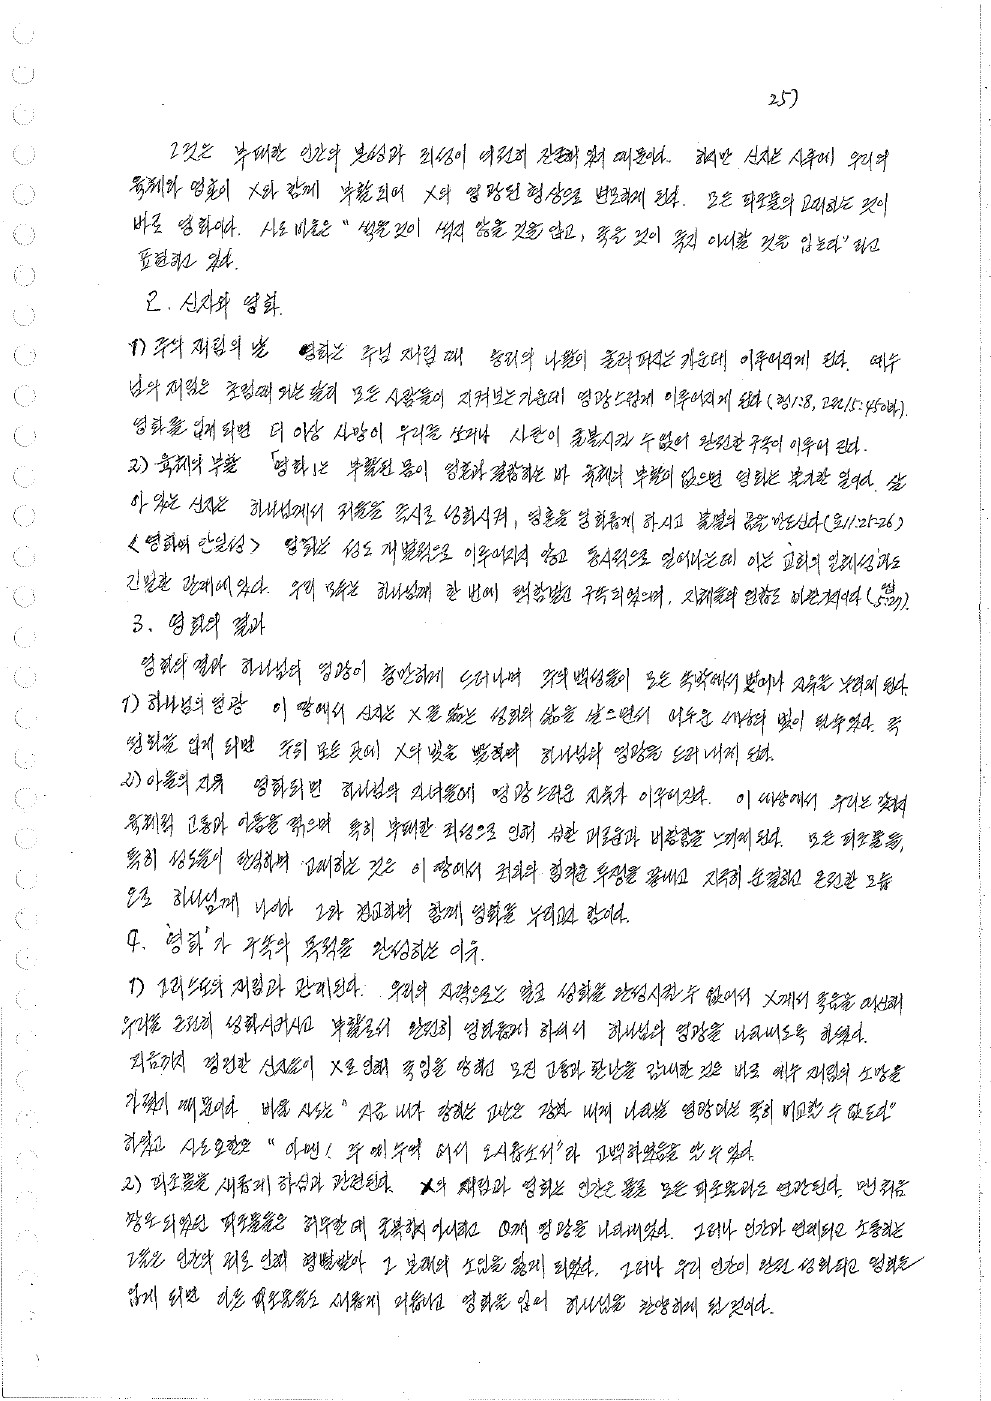 25)
그것은 부패한 인간의 본성과 죄성이 여전히 잔존해 있기 때문이다. 하지만 신자는 사후에 우리의
육체와 영혼이 X와 함께 부활되어 X의 영광된 형상으로 변모하게 된다. 모든 피조물의 고대하는 것이
바로 영화이다. 사도 바울은 "썩을것이 썩지 않을 것을 입고, 죽을 것이 죽지 아니할 것을 입는다"라고
표현하고 있다.
2. 신자와 영화.
1) 주의 재림의 날 영화는 주님 재림 때 승리의 나팔이 울려 퍼지는 가운데 이루어지게 된다. 예수
님의 재림은 초림때와는 달리 모든 사람들이 지켜보는 가운데 영광스럽게 이루어지게 된다(계1:8, 고전15:45이하).
영화를 입게 되면 더 이상 사망이 우리를 쏘거나 사탄이 굴복시킬 수 없어 완전한 구속이 이루어 진다.
2) 육체의 부활 「영화」는 부활된 몸이 영혼과 결합하는 바 육체의 부활이 없으면 영화는 불가한 일이다. 살
아 있는 신자는 하나님께서 저들을 즉시로 성화시켜, 영혼을 영화롭게 하시고 불멸의 몸을 만드신다(요11:25-26)
<영화의 단일성> 영화는 성도 개별적으로 이루어지지 않고 동시적으로 일어나는데 이는 '교회의 일체성'과도
긴밀한 관계에 있다. 우리 모두는 하나님께 한 번에 택함받고 구속되었으며, 지체들의 연합도 마찬가지이다(엡5:27).
3. 영화의 결과
영화의 결과 하나님의 영광이 충만하게 드러나며 주의 백성들이 모든 속박에서 벗어나 자유를 누리게 된다.
1) 하나님의 영광 이 땅에서 신자는 X를 닮는 성화의 삶을 살으면서 어두운 세상의 빛이 될 수 있다. 즉
영화를 입게 되면 주위 모든 곳에 X의 빛을 발하며 하나님의 영광을 드러내게 된다.
2) 아들의 자유 영화되면 하나님의 자녀들에 영광스러운 자유가 이루어진다. 이 세상에서 우리는 갖가지
육체적 고통과 아픔을 겪으며 특히 부패한 죄성으로 인해 심한 괴로움과 비참함을 느끼게 된다. 모든 피조물들,
특히 성도들이 탄식하며 고대하는 것은 이 땅에서 죄와의 힘겨운 투쟁을 끝내고 지극히 순결하고 온전한 모습
으로 하나님께 나아가 그와 친교하며 함께 영화를 누리고자 함이다.
4. '영화'가 구속의 목적을 완성하는 이유.
1) 그리스도의 재림과 관계된다. 우리의 자력으로는 결코 성화를 완성시킬 수 없어서 X께서 죽음을 이기시며
우리를 온전히 성화시키시고 부활로서 완전히 영화롭게 하셔서 하나님의 영광을 나타내도록 하였다.
지금까지 경건한 신자들이 X로 인해 죽임을 당하고 모진 고통과 환난을 감내한 것은 바로 예수 재림의 소망을
가졌기 때문이다. 바울 사도는 "지금 내가 당하는 고난은 장차 내게 나타날 영광과는 족히 비교할 수 없도다"
하였고 사도요한도 "아멘! 주 예수여 어서 오시옵소서"라 고백하였음을 알 수 있다.
2) 피조물을 새롭게 하심과 관련된다. X의 재림과 영화는 인간은 물론 모든 피조물과도 연관된다. 맨 처음
창조되었던 피조물들은 허무한데 굴복하지 아니하고 O께 영광을 나타내었다. 그러나 인간과 연계되고 소통하는
그들은 인간의 죄로 인해 형벌받아 그 본래의 소임을 잃게 되었다. 그러나 우리 인간이 완전 성화되고 영화를
입게 되면 다른 피조물들도 새롭게 거듭나고 영화를 입어 하나님을 찬양하게 될 것이다.